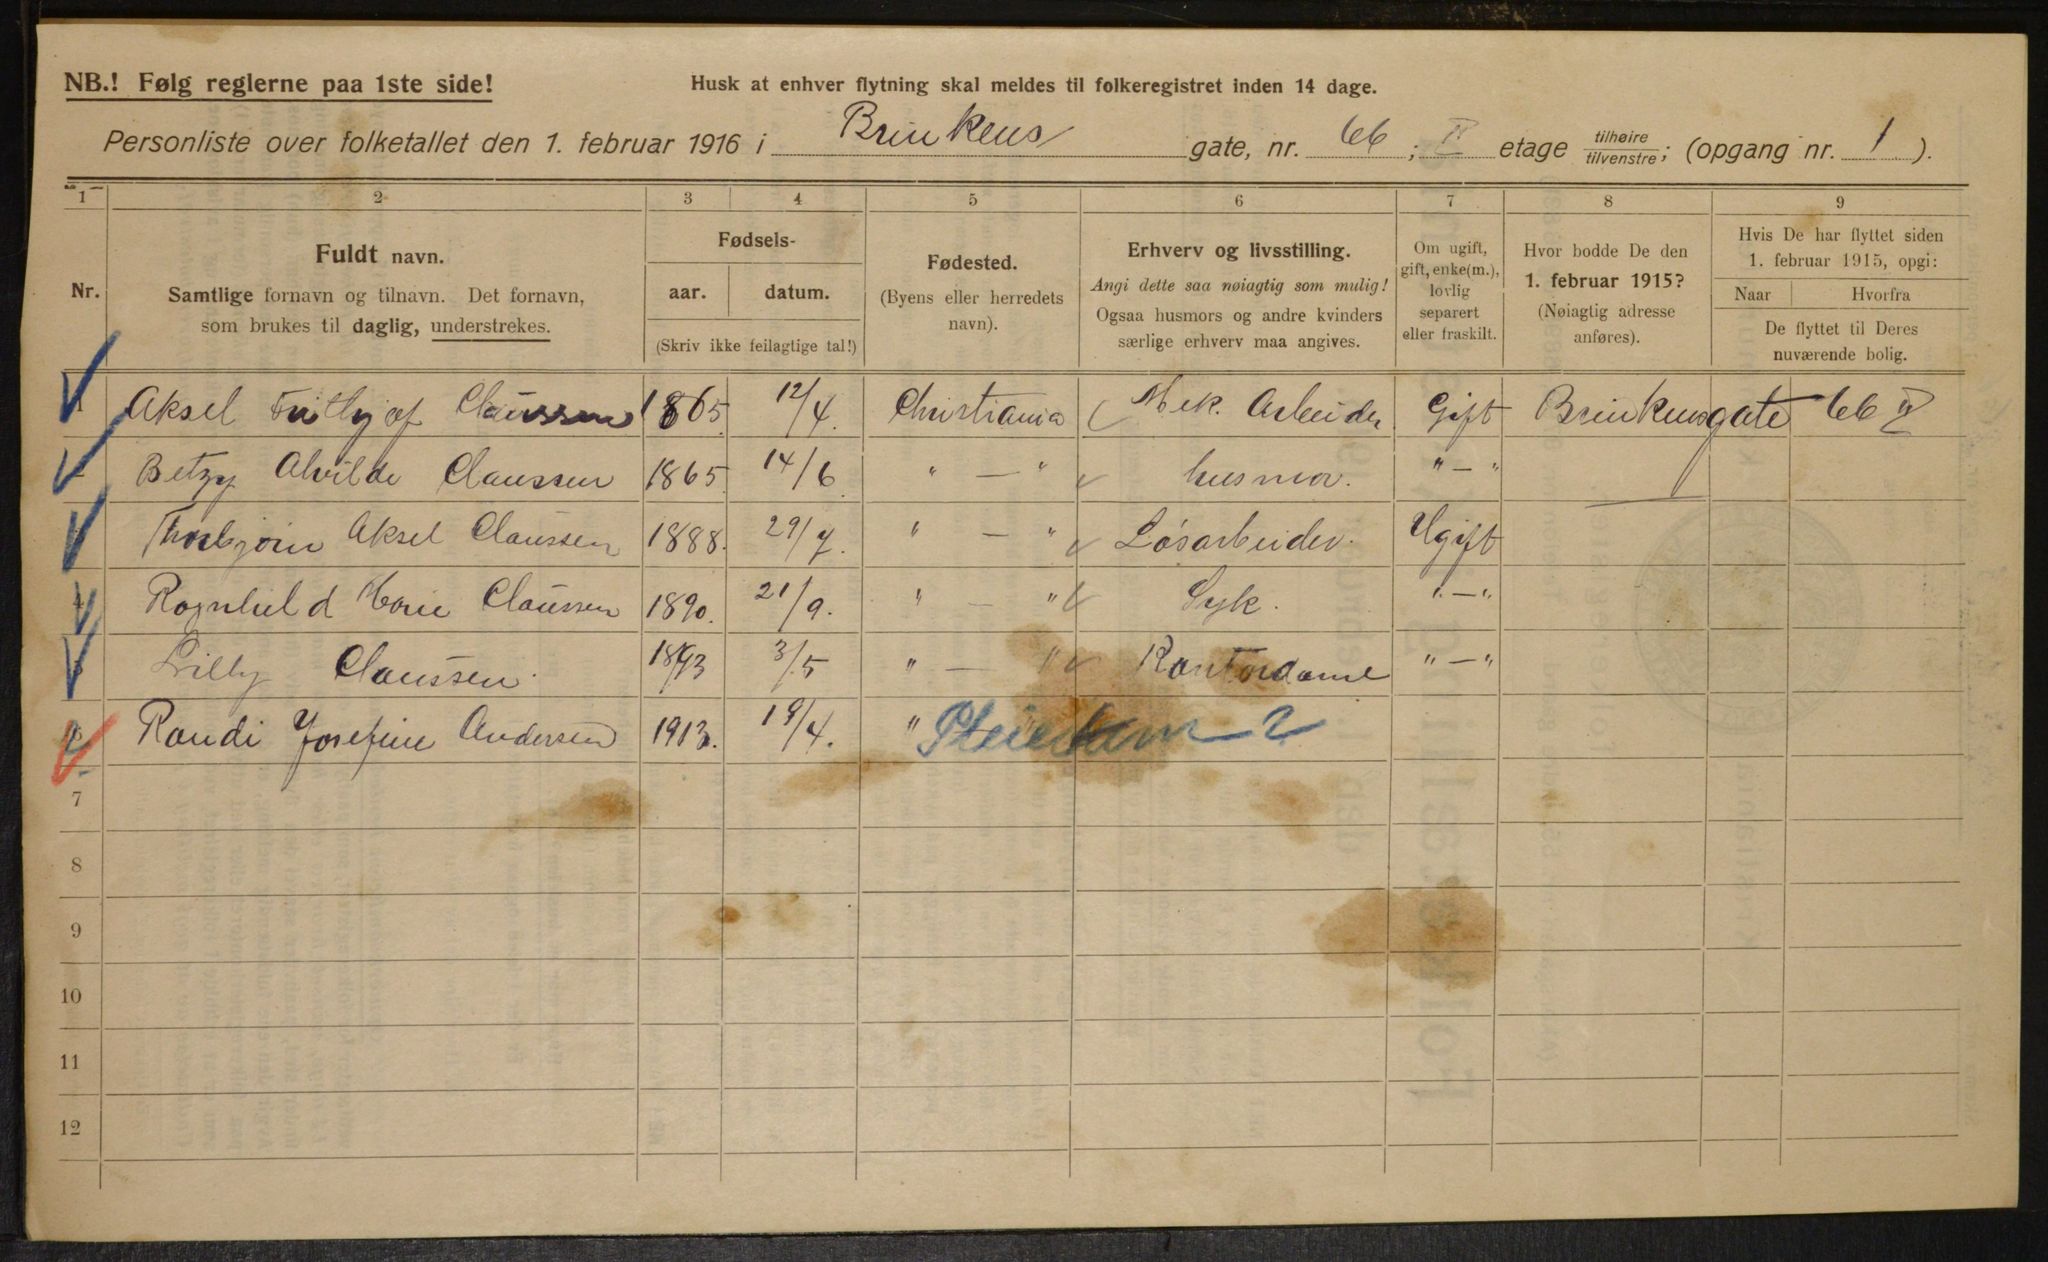 NB.! Følg reglerne paa 1ste side!
Husk at enhver flytning skal meldes til folkeregistret inden 14 dage.
Personliste over folketallet den 1. februar 1916 i Brinkens gate, nr. 66 ; II etage tilhøire/tilvenstre; (opgang nr. 1 ).
1 2 3 4 5 6 7 8 9
Nr.
Fuldt navn.
Samtlige fornavn og tilnavn. Det fornavn,
som brukes til daglig, understrekes.
Fødsels-
aar. datum.
(Skriv ikke feilagtige tal!)
Fødested.
(Byens eller herredets
navn).
Erhverv og livsstilling.
Angi dette saa nøiagtig som mulig!
Ogsaa husmors og andre kvinders
særlige erhverv maa angives.
Om ugift,
gift, enke(m.),
lovlig
separert
eller fraskilt.
Hvor bodde De den
1. februar 1915?
(Nøiagtig adresse
anføres).
Hvis De har flyttet siden
1. februar 1915, opgi:
Naar Hvorfra
De flyttet til Deres
nuværende bolig.
1 Aksel Frithjof Claussen 1865 12/4. Christiania Mek. Arbeider Gift Brinkensgate 66 II
Betzy Alvilde Claussen 1865 14/6 " — " husmor. " — "
Thorbjørn Aksel Claussen 1888. 29/7. " — " Løsarbeider. Ugift
4 Ragnhild Marie Claussen 1890. 21/9. " — " Syk. " — "
Lilly Claussen. 1893 3/5 " — " Kontordame " — "
6 Randi Josefine Andersen 1913. 19/4. " Pleiebarn
7
8
9
10
11
12